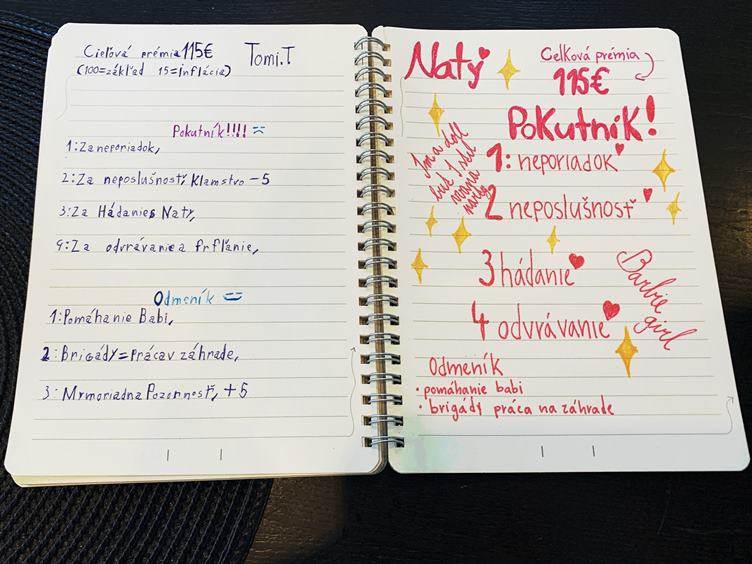 Cieľová prémia 115€
Tomi.T
(100=základ 15=Inflácia)
Pokutník!!!!
1:Za neporiadok,
2:Za neposlušnosť, Klamstvo -5
3:Za Hádanies Naty,
4:Za odvrávanie a frflanie,
Odmeník
1:Pomáhanie Babi,
2:Brigády=prácav záhrade,
3:Mrmoriadna Pozornosť, +5
Naty
Celková prémia
115€
Pokutník!
1: neporiadok
2 neposlušnosť
3 hádanie
4 odvrávanie
Barbie girl
Odmeník
• pomáhanie babi
• brigády práca na záhrade